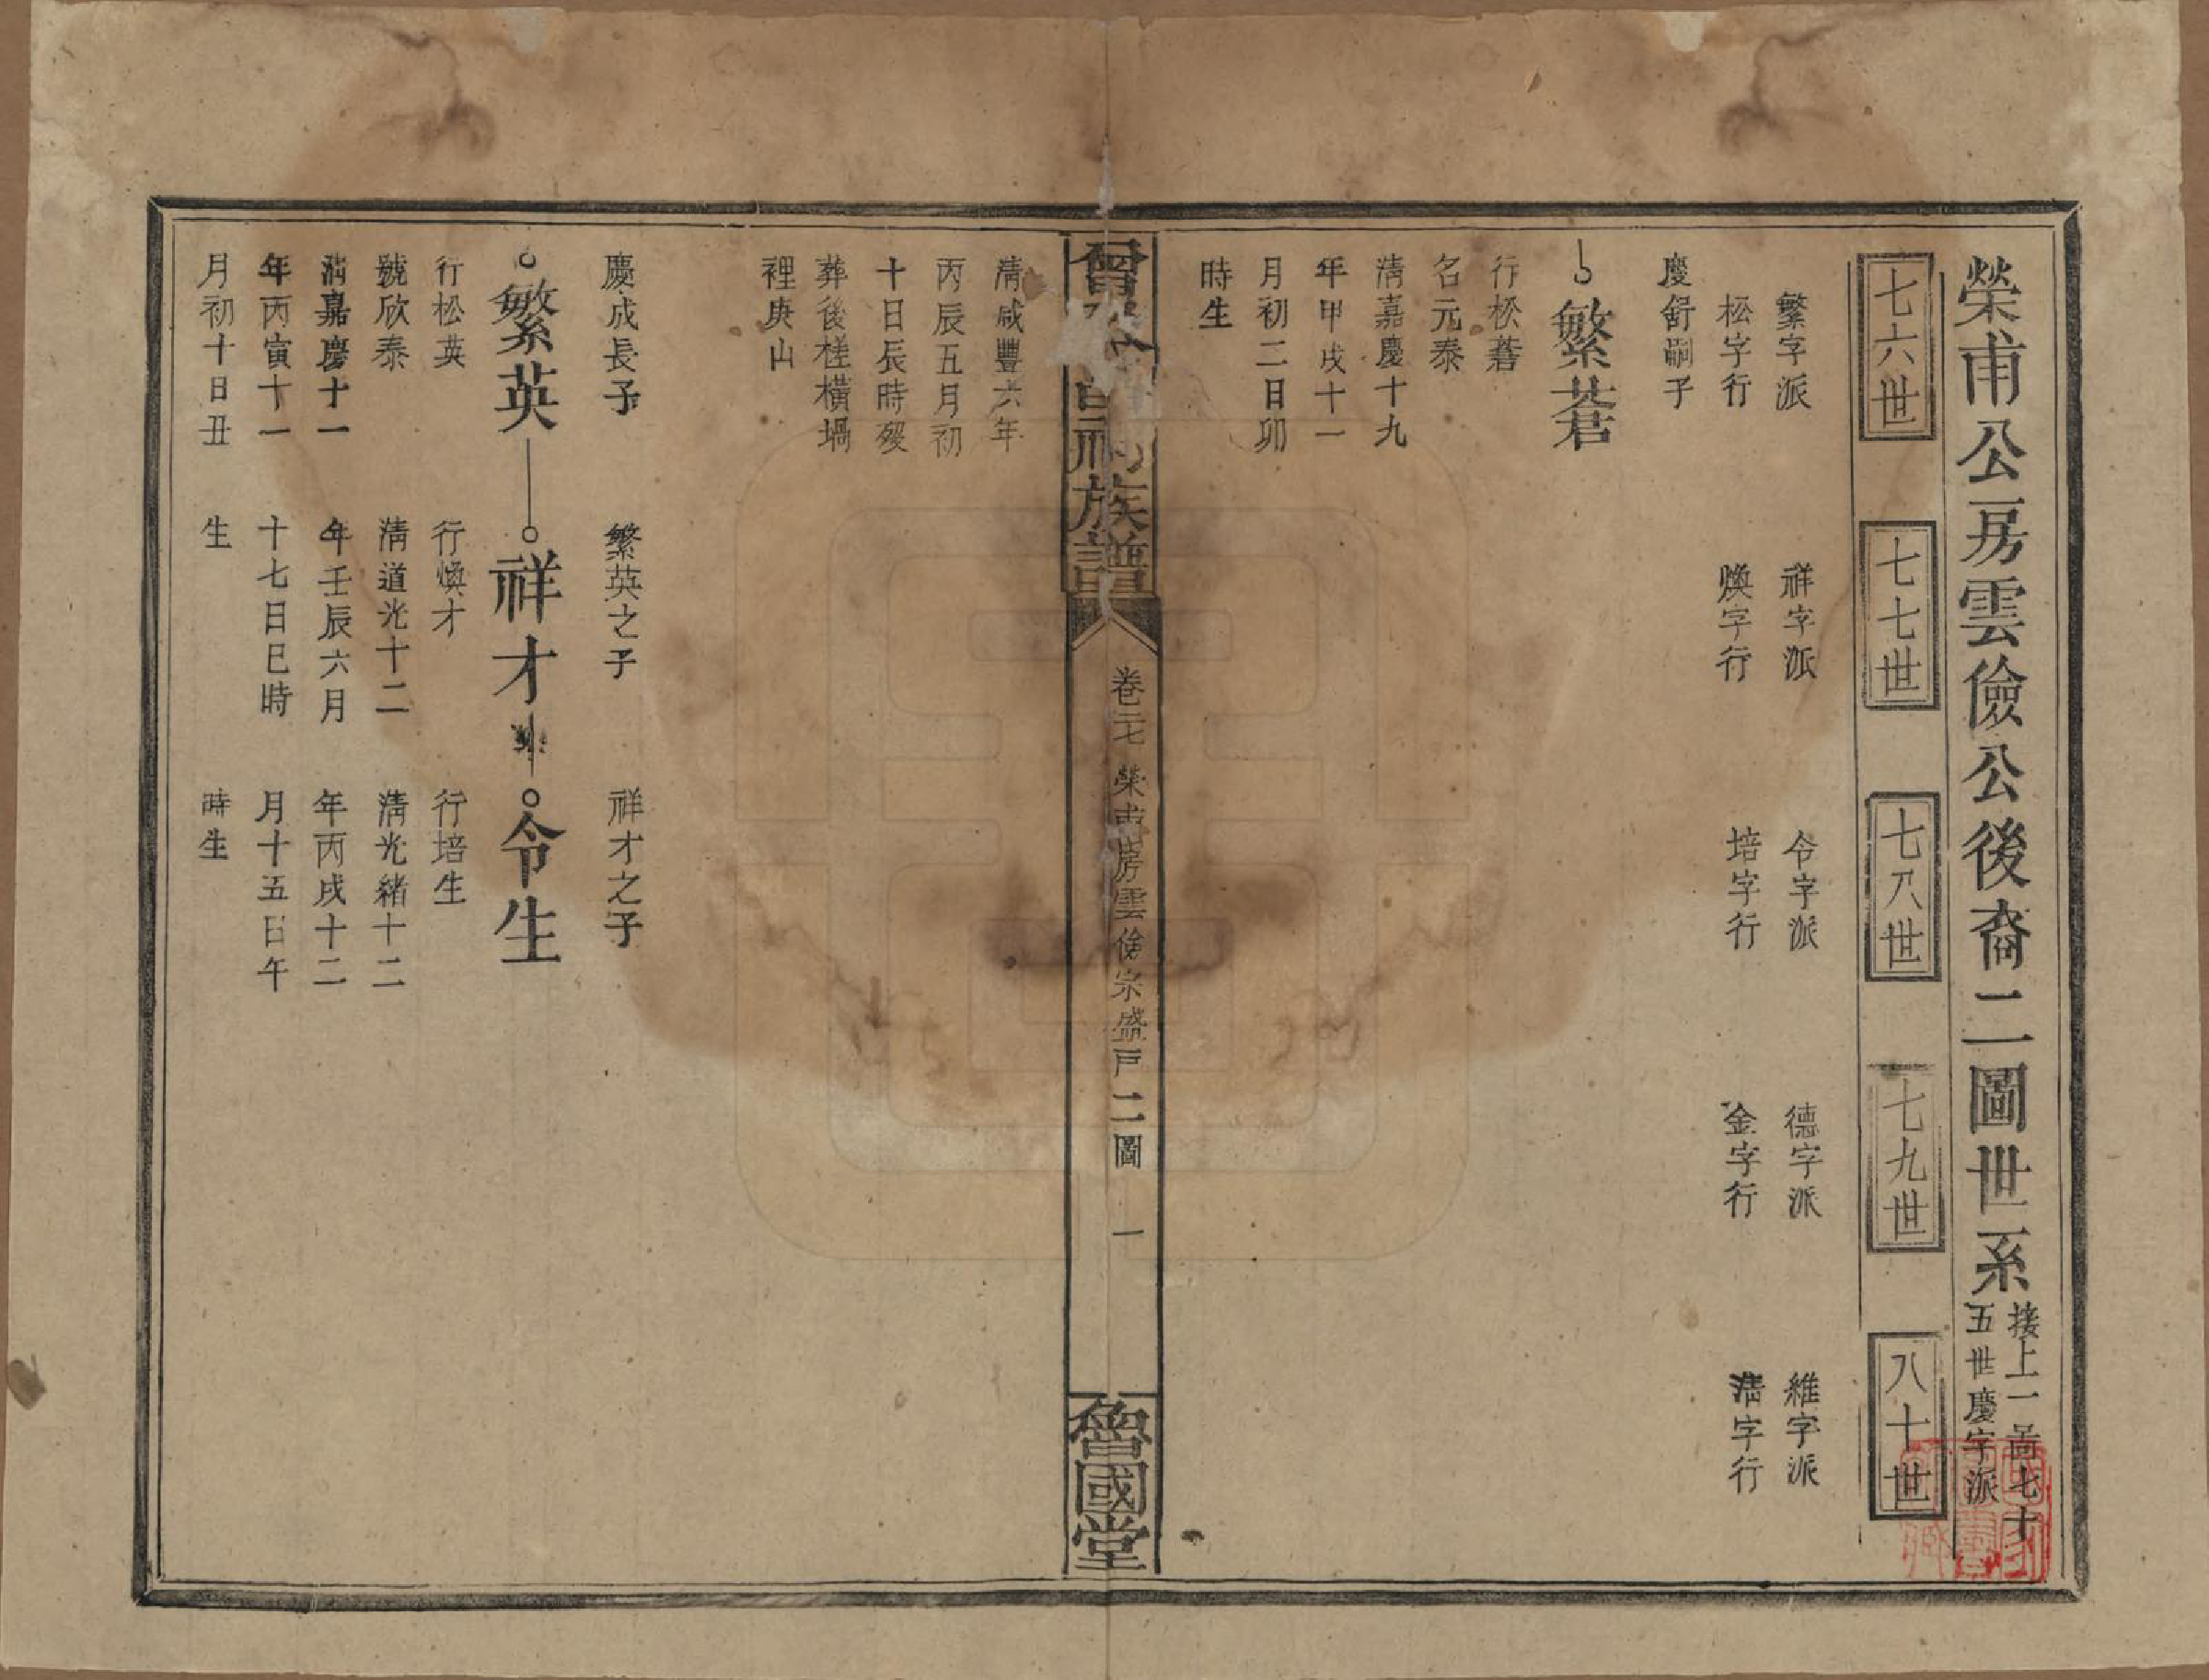 榮甫公房雲儉公後裔二圖世系
接上一圖七十
五世慶字派
七六世
七七世
七八世
七九世
八十世
繁字派
祥字派
令字派
德字派
維字派
松字行
煥字行
培字行
金字行
清字行
慶舒嗣子
繁蒼
行松蒼
名元泰
清嘉慶十九
年甲戌十一
月初二日卯
時生
族譜
卷二七
榮甫房雲儉宗盛戶二圖
一
魯國堂
清咸豐六年
丙辰五月初
十日辰時歿
葬後槎橫塌
裡庚山
慶成長子
繁英之子
祥才之子
繁英
祥才
令生
行松英
號欣泰
清嘉慶十一
年丙寅十一
月初十日丑
行煥才
清道光十二
年壬辰六月
十七日巳時
生
行培生
清光緒十二
年丙戌十二
月十五日午
時生